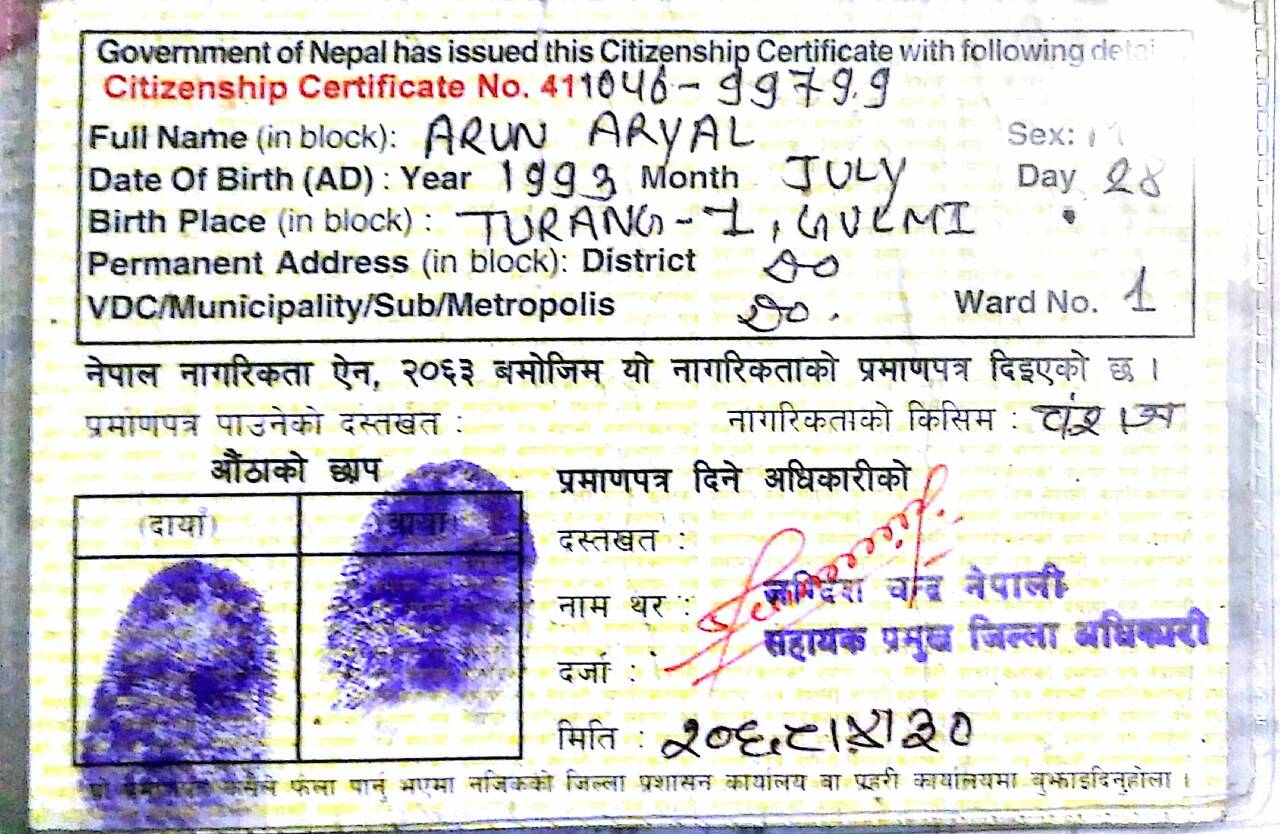 Government of Nepal has issued this Citizenship Certificate with following detai
Citizenship Certificate No. 411046-99799
Full Name (in block): ARUN ARYAL Sex:
Date Of Birth (AD) : Year 1993 Month JULY Day 28
Birth Place (in block) : TURANG-1, GULMI
Permanent Address (in block): District Do
VDC/Municipality/Sub/Metropolis Do. Ward No. 1
नेपाल नागरिकता ऐन, २०६३ बमोजिम यो नागरिकताको प्रमाणपत्र दिइएको छ ।
प्रमाणपत्र पाउनेको दस्तखत : नागरिकताको किसिम : वंशज
औंठाको छाप
(दायाँ) (बायाँ)
प्रमाणपत्र दिने अधिकारीको
दस्तखत :
नाम थर : चन्द्र नेपाली
सहायक प्रमुख जिल्ला अधिकारी
दर्जा :
मिति :
यो प्रमाणपत्र कसैले फेला पार्नु भएमा नजिकको जिल्ला प्रशासन कार्यालय वा प्रहरी कार्यालयमा बुझाइदिनुहोला ।